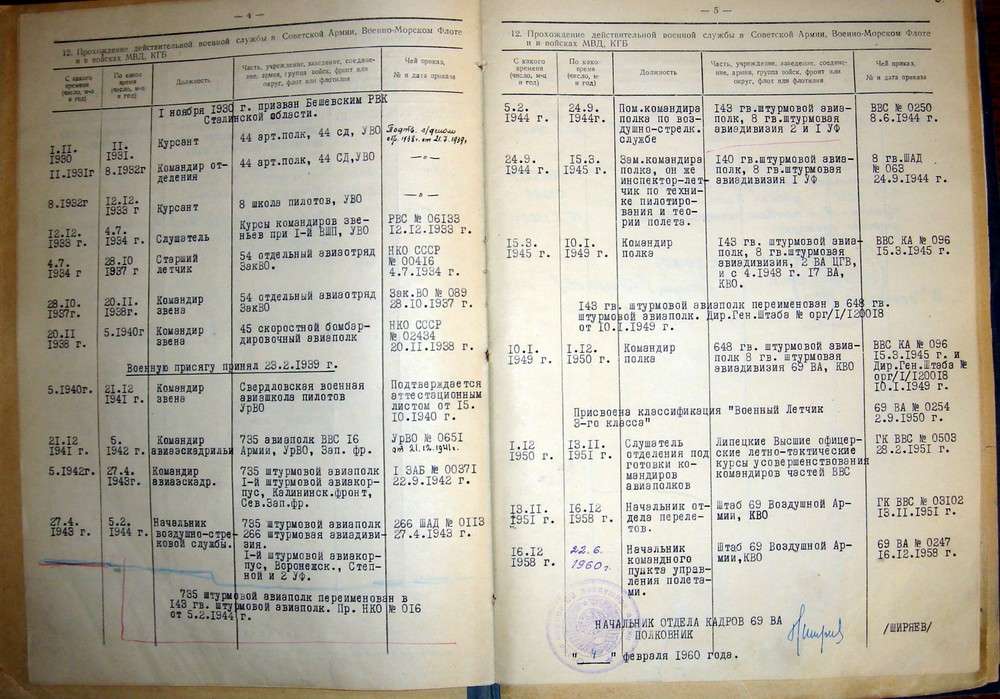 — 4 —
12. Прохождение действительной военной службы в Советской Армии, Военно-Морском Флоте
и в войсках МВД, КГБ
С какого времени (число, м-ц и год) | По какое время (число, м-ц и год) | Должность | Часть, учреждение, заведение, соединение, армия, группа войск, фронт или округ, флот или флотилия | Чей приказ, № и дата приказа
I ноября 1930 г. призван Бешевским РВК
Сталинской области.
I.II. 1930 | II. 1931. | Курсант | 44 арт.полк, 44 сд, УВО
II.1931г | 8.1932г | Командир отделения | 44 арт.полк, 44 СД,УВО | —"—
8.1932г | 12.12. 1933 г | Курсант | 8 школа пилотов, УВО | —"—
12.12. 1933 г. | 4.7. 1934 г. | Слушатель | Курсы командиров звеньев при I-й ВШП, УВО | РВС № 06133 12.12.1933 г.
4.7. 1934 г | 28.10 1937 г | Старший летчик | 54 отдельный авиаотряд ЗакВО. | НКО СССР № 00416 4.7.1934 г.
28.10. 1937г. | 20.II. 1938г. | Командир звена | 54 отдельный авиаотряд ЗакВО | Зак.ВО № 089 28.10.1937 г.
20.II 1938 г. | 5.1940г | Командир звена | 45 скоростной бомбардировочный авиаполк | НКО СССР № 02434 20.II.1938 г.
Военную присягу принял 23.2.1939 г.
5.1940г. | 21.12 1941 г. | Командир звена | Свердловская военная авиашкола пилотов УрВО | Подтверждается аттестационным листом от 15. 10.1940 г.
21.12 1941 г. | 5. 1942 г. | Командир авиаэскадрильи | 735 авиаполк ВВС 16 Армии, УрВО, Зап. фр. | УрВО № 0651 от 21.12.1941г.
5.1942г. | 27.4. 1943г. | Командир авиаэскадр. | 735 штурмовой авиаполк I-й штурмовой авиакорпус, Калининск.фронт, Сев.Зап.фр. | I ЗАБ № 00371 22.9.1942 г.
27.4. 1943 г. | 5.2. 1944 г. | Начальник воздушно-стрелковой службы. | 735 штурмовой авиаполк 266 штурмовая авиадивизия. I-й штурмовой авиакорпус, Воронежск., Степной и 2 УФ. | 266 ШАД № 0113 27.4.1943 г.
735 штурмовой авиаполк переименован в
143 гв. штурмовой авиаполк. Пр. НКО № 016
от 5.2.1944 г.
— 5 —
12. Прохождение действительной военной службы в Советской Армии, Военно-Морском Флоте
и в войсках МВД, КГБ
С какого времени (число, м-ц и год) | По какое время (число, м-ц и год) | Должность | Часть, учреждение, заведение, соединение, армия, группа войск, фронт или округ, флот или флотилия | Чей приказ, № и дата приказа
5.2. 1944 г. | 24.9. 1944г. | Пом.командира полка по воздушно-стрелк. службе | 143 гв.штурмовой авиаполк, 8 гв.штурмовая авиадивизия 2 и I УФ | ВВС № 0250 8.6.1944 г.
24.9. 1944 г. | 15.3. 1945 г. | Зам.командира полка, он же инспектор-летчик по технике пилотирования и теории полета. | 140 гв.штурмовой авиаполк, 8 гв.штурмовая авиадивизия I УФ | 8 гв.ШАД № 063 24.9.1944 г.
15.3. 1945 г. | 10.I. 1949 г. | Командир полка | 143 гв. штурмовой авиаполк, 8 гв.штурмовая авиадивизия, 2 ВА ЦГВ, и с 4.1948 г. 17 ВА, КВО. | ВВС КА № 096 15.3.1945 г.
143 гв. штурмовой авиаполк переименован в 648 гв.
штурмовой авиаполк. Дир.Ген.Штаба № орг/I/120018
от 10.I.1949 г.
10.I. 1949 г. | I.12. 1950 г. | Командир полка | 648 гв. штурмовой авиаполк 8 гв. штурмовая авиадивизия 69 ВА, КВО | ВВС КА № 096 15.3.1945 г. и Дир.Ген.Штаба № орг/I/120018 10.I.1949 г.
Присвоена классификация "Военный Летчик 3-го класса" | 69 ВА № 0254 2.9.1950 г.
I.12 1950 г. | 13.II. 1951 г. | Слушатель отделения подготовки командиров авиаполков | Липецкие Высшие офицерские летно-тактические курсы усовершенствования командиров частей ВВС | ГК ВВС № 0503 28.2.1951 г.
13.II. 1951 г. | 16.12 1958 г. | Начальник отдела перелетов. | Штаб 69 Воздушной Армии, КВО | ГК ВВС № 03102 13.II.1951 г.
16.12 1958 г. | 22.6. 1960г. | Начальник командного пункта управления полетами. | Штаб 69 Воздушной Армии,КВО | 69 ВА № 0247 16.12.1958 г.
НАЧАЛЬНИК ОТДЕЛА КАДРОВ 69 ВА
ПОЛКОВНИК
/ШИРЯЕВ/
" 4 " февраля 1960 года.